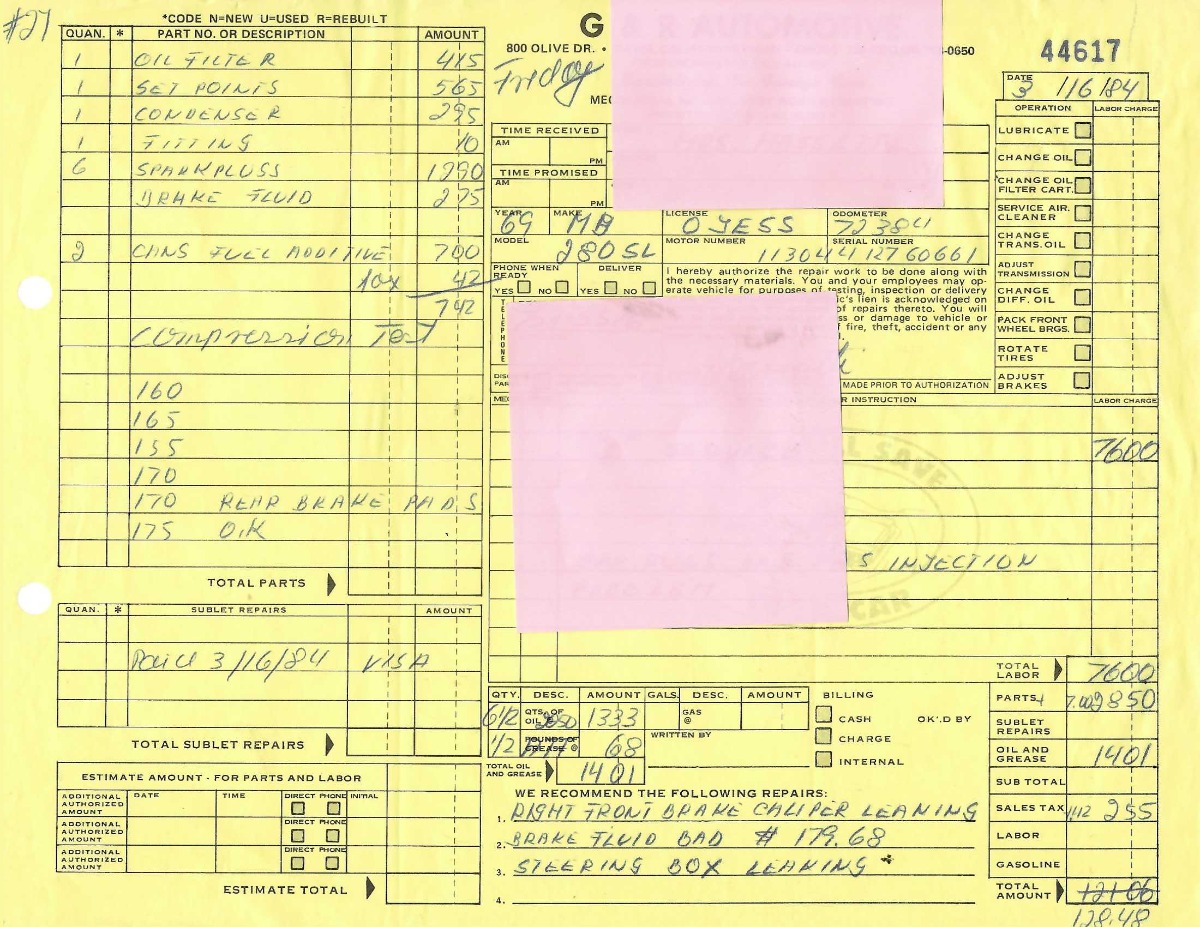 #27
*CODE N=NEW U=USED R=REBUILT
QUAN. * PART NO. OR DESCRIPTION AMOUNT
1 OIL FILTER 4 45
1 SET POINTS 5 65
1 CONDENSER 2 95
1 FITTING 10
6 SPARKPLUSS 12 90
BRAKE FLUID 2 75
2 CANS FUEL ADDITIVE 7 00
tax 42
7 42
Compression Test
160
165
155
170
170 REAR BRAKE PADS
175 O.K
TOTAL PARTS
QUAN. * SUBLET REPAIRS AMOUNT
Paid 3/16/84 VISA
TOTAL SUBLET REPAIRS
ESTIMATE AMOUNT - FOR PARTS AND LABOR
ADDITIONAL AUTHORIZED AMOUNT DATE TIME DIRECT PHONE INITIAL
ADDITIONAL AUTHORIZED AMOUNT DIRECT PHONE
ADDITIONAL AUTHORIZED AMOUNT DIRECT PHONE
ESTIMATE TOTAL
G
800 OLIVE DR. •
-0650
Friday
MEC
44617
DATE
3/16/84
TIME RECEIVED
AM
PM
TIME PROMISED
AM
PM
YEAR 69 MAKE MB LICENSE OJESS ODOMETER 72384
MODEL 280SL MOTOR NUMBER SERIAL NUMBER
PHONE WHEN READY YES NO DELIVER YES NO
I hereby authorize the repair work to be done along with
the necessary materials. You and your employees may op-
erate vehicle for purposes of testing, inspection or delivery
ic's lien is acknowledged on
of repairs thereto. You will
ss or damage to vehicle or
f fire, theft, accident or any
MADE PRIOR TO AUTHORIZATION
R INSTRUCTION LABOR CHARGE
76 00
L SAVE
S INJECTION
CAR
OPERATION LABOR CHARGE
LUBRICATE
CHANGE OIL
CHANGE OIL FILTER CART.
SERVICE AIR. CLEANER
CHANGE TRANS. OIL
ADJUST TRANSMISSION
CHANGE DIFF. OIL
PACK FRONT WHEEL BRGS.
ROTATE TIRES
ADJUST BRAKES
QTY. DESC. AMOUNT GALS. DESC. AMOUNT
6 1/2 QTS. OF OIL @ 13 33 GAS @
1/2 POUNDS OF GREASE @ 68 WRITTEN BY
TOTAL OIL AND GREASE 14 01
BILLING
CASH OK'D BY
CHARGE
INTERNAL
WE RECOMMEND THE FOLLOWING REPAIRS:
1. RIGHT FRONT BRAKE CALIPER LEAKING
2. BRAKE FLUID BAD # 179.68
3. STEERING BOX LEAKING
4.
TOTAL LABOR 76 00
PARTS 7.00 28 50
SUBLET REPAIRS
OIL AND GREASE 14 01
SUB TOTAL
SALES TAX 2 55
LABOR
GASOLINE
TOTAL AMOUNT 121 06
128.48